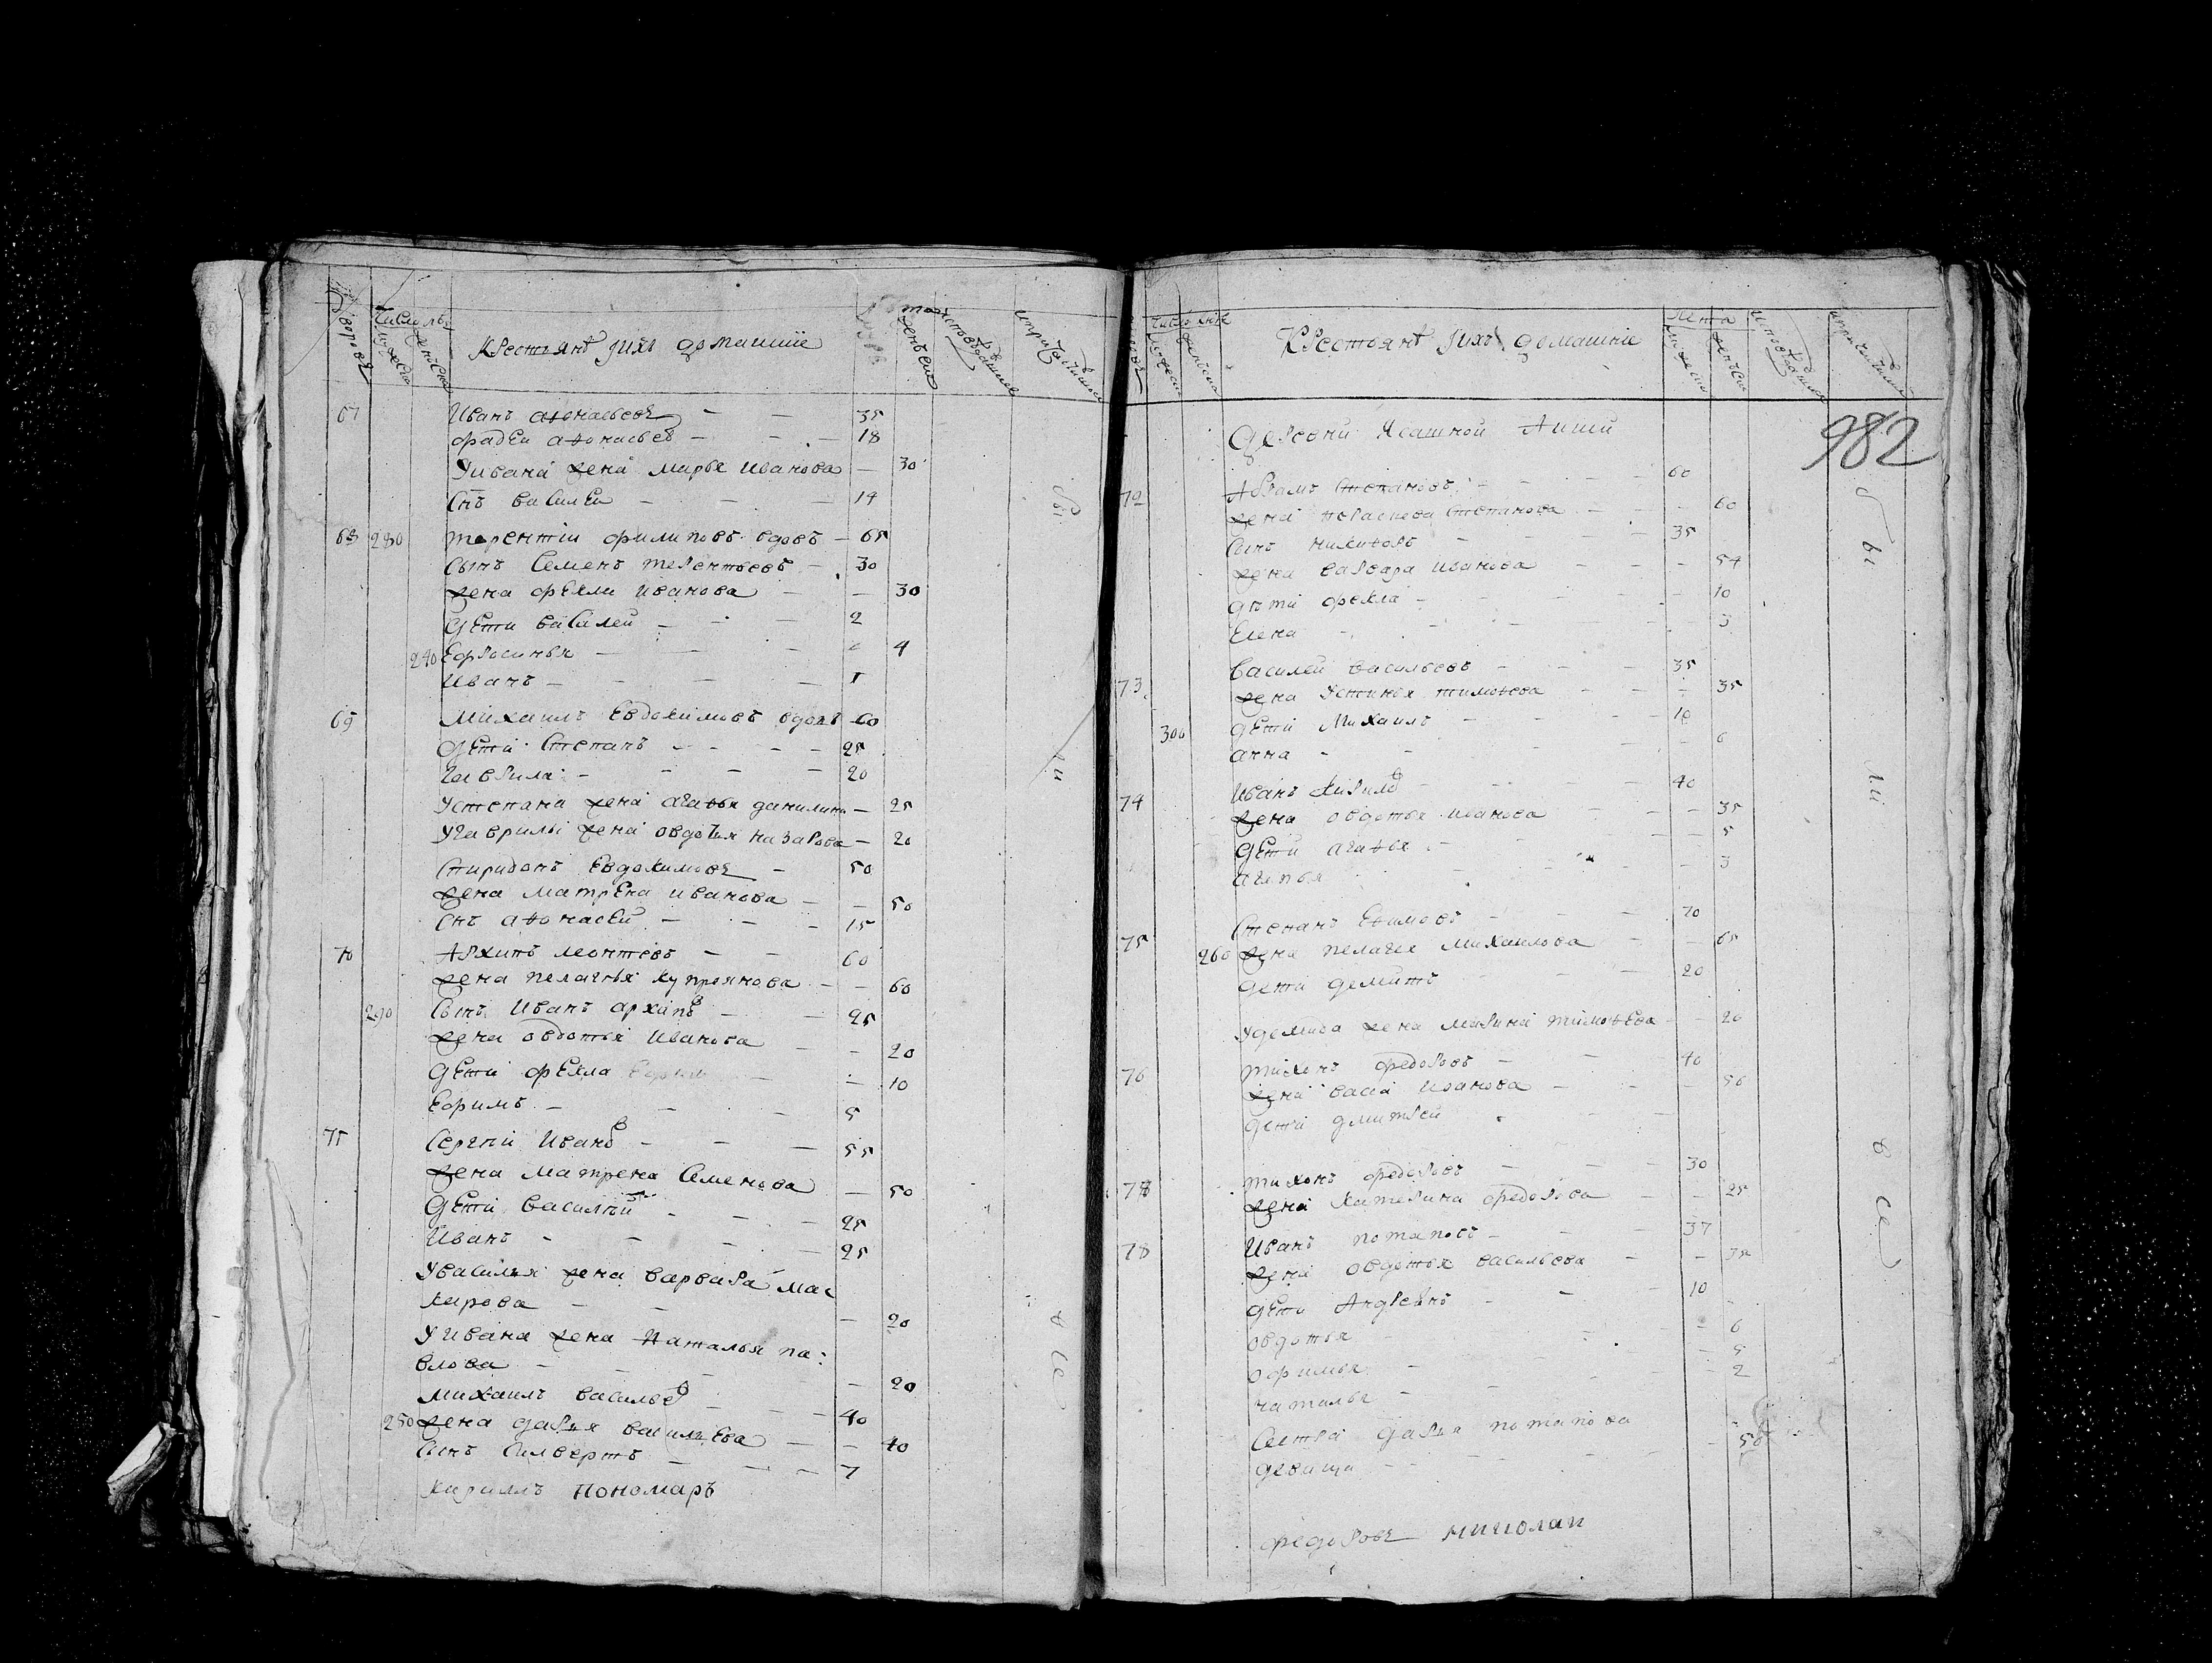 дворовъ
Число лю
мужеска
женска
Крестьянѣ и ихъ домашніе
женска
исповѣдавшиеся
и причастившиеся
67 Иванъ Аѳонасьевъ — — 35
Фадей Аѳонасьевъ — — — 18
У Ивана жена Марья Иванова — 30
Снъ Василей — — — 14
68 230 Терентій Филиповъ вдовъ — 65
Сынъ Семенъ Терентьевъ — 30
жена Фекла Иванова — — 30
дети Василей — — — 2
240 Ефросинья — — — 4
Иванъ — — — — 1
69 Михаилъ Евдокимовъ вдовъ 60
дети Степанъ — — — — 25
Гаврила — — — — 20
У Степана жена Агаѳья Данилина — 25
У Гаврилы жена Овдотья Назарова — 20
Спиридонъ Евдокимовъ — 50
жена Матрена Иванова — — 50
Снъ Аѳонасей — — — 15
70 Архипъ Леонтьевъ — — 60
жена Пелагея Купреянова — — 60
290 Сынъ Иванъ Архипов — — 25
жена Овдотья Иванова — — 20
дети Фекла — — 10
Ефримъ — — — 5
71 Сергѣй Иванов — — — 55
жена Матрена Семенова — 50
дети Василѣй — — — 25
Иванъ — — — — 25
У Василья жена Варвара Мас
кирова — — — 20
У Ивана жена Наталья па:
влова — — — — 20
Михаилъ Васильев — — — 40
250 жена Дарья Васильева — — 40
Сынъ Силвертъ — — — 7
Кирилъ пономаръ
Число
мужеска
женска
Крестьянѣ и ихъ домашніе
Лета
мужеска
женска
исповѣдавшиеся
и причастившиеся
982
Деревни Ясашной
72 Абрамъ Степановъ — — — 60
жена Параскева Степанова — — 60
Сынъ Никифоръ — — — 35
жена Варвара Иванова — — — 54
дѣти Фекла — — — 10
Елена — — — — 3
73 Василей Васильевъ — — — 35
жена Устинья Тимоѳеева — — — 35
300 дети Михаилъ — — — 10
Анна — — — — 6
74 Иванъ Кирилов — — — 40
жена Овдотья Иванова — — 35
дети Агаѳья — — — 5
— 3
75 Степанъ Еѳимовъ — — — 70
260 жена Пелагея Михаилова — — 65
дети Демитъ — — — 20
У Демида жена Марина Тимоѳеева — — 20
76 Тихонъ Федоровъ — — 40
жена Васса Иванова — — 50
дети Дмитрей — —
78 Тихонъ Федоровъ — — — 30
жена Катерина Федорова — — 25
78 Иванъ Потаповъ — — 37
жена Овдотья Васильева — — 35
дети Андреянъ — — — 10
Овдотья — — — 6
Офимья — — — 5
Наталья — — 2
Сестра Дарья Потапова
девица — — — 50
Федоровъ Николаи